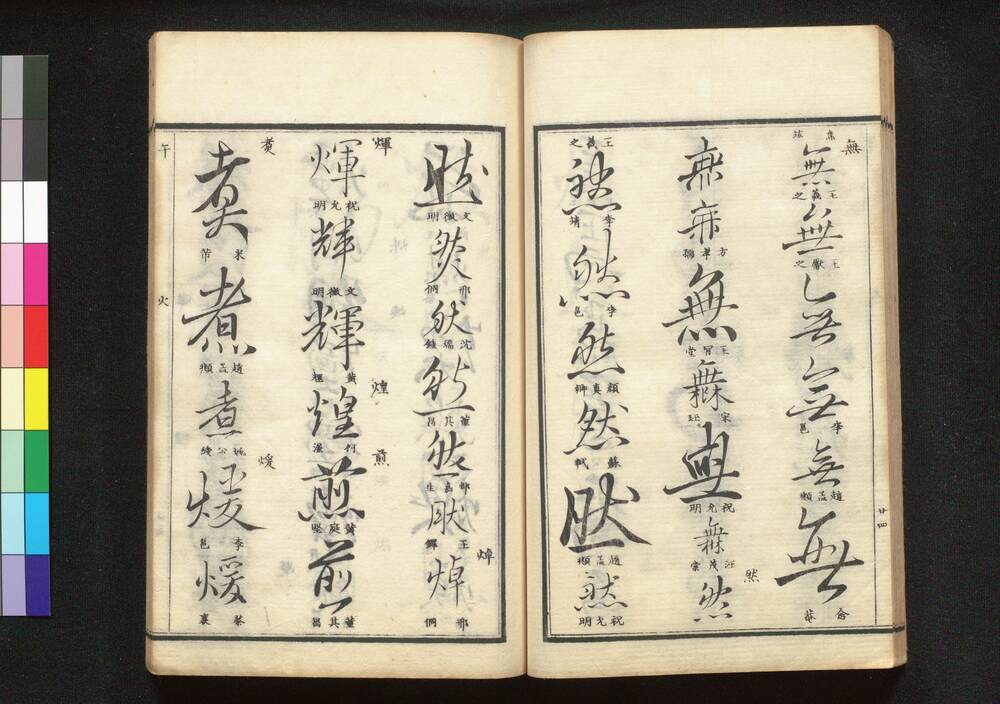 無
無
王羲之
無
王獻之
無
無
李邕
無
趙孟頫
無
俞
廿四
無
無
方孝孺
無
無
宋
無
祝允明
無
汪茂
然
然
王羲之
然
李靖
然
李邕
然
顏真卿
然
蘇軾
然
趙孟頫
然
祝允明
然
文徵明
然
邢侗
然
沈
然
董其昌
然
然
王鐸
焯
焯
邢侗
輝
輝
祝允明
輝
文徵明
輝
黃
煌
煌
煎
煎
黃庭堅
煎
董其昌
煮
煮
米芾
煮
趙孟頫
煮
煖
煖
李邕
煖
蔡襄
午
火